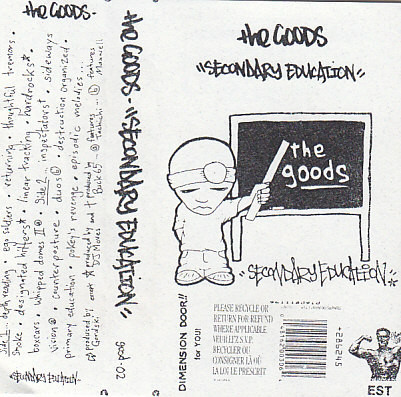 the GOODS-
Side 1... depth reading. ego soldiers. returning. thoughtful tremors.
smoke. designated hitters*. linear tracking. hardrocks*.
boxcars. whipped domes II. Side 2... inspectators†. sideways
vision. counterposture. duos. destruction organized.
primary education. revenge. episodic melodies...
produced by * produced by and † produced by features
Gordski. DJ Moves Buck 65 Tachichi... features Maxwell
SECONDARY EDUCATION
the GOODS - "SECONDARY EDUCATION"
good-02
the GOODS
"SECONDARY EDUCATION"
the
goods
"SECONDARY EDUCATION"
DIMENSION DOOR!!
for YOU!
PLEASE RECYCLE OR
RETURN FOR REFUND
WHERE APPLICABLE
VEUILLEZ S.V.P.
RECYCLER OU
CONSIGNER LÀ OÙ
LA LOI LE PRESCRIT
EST